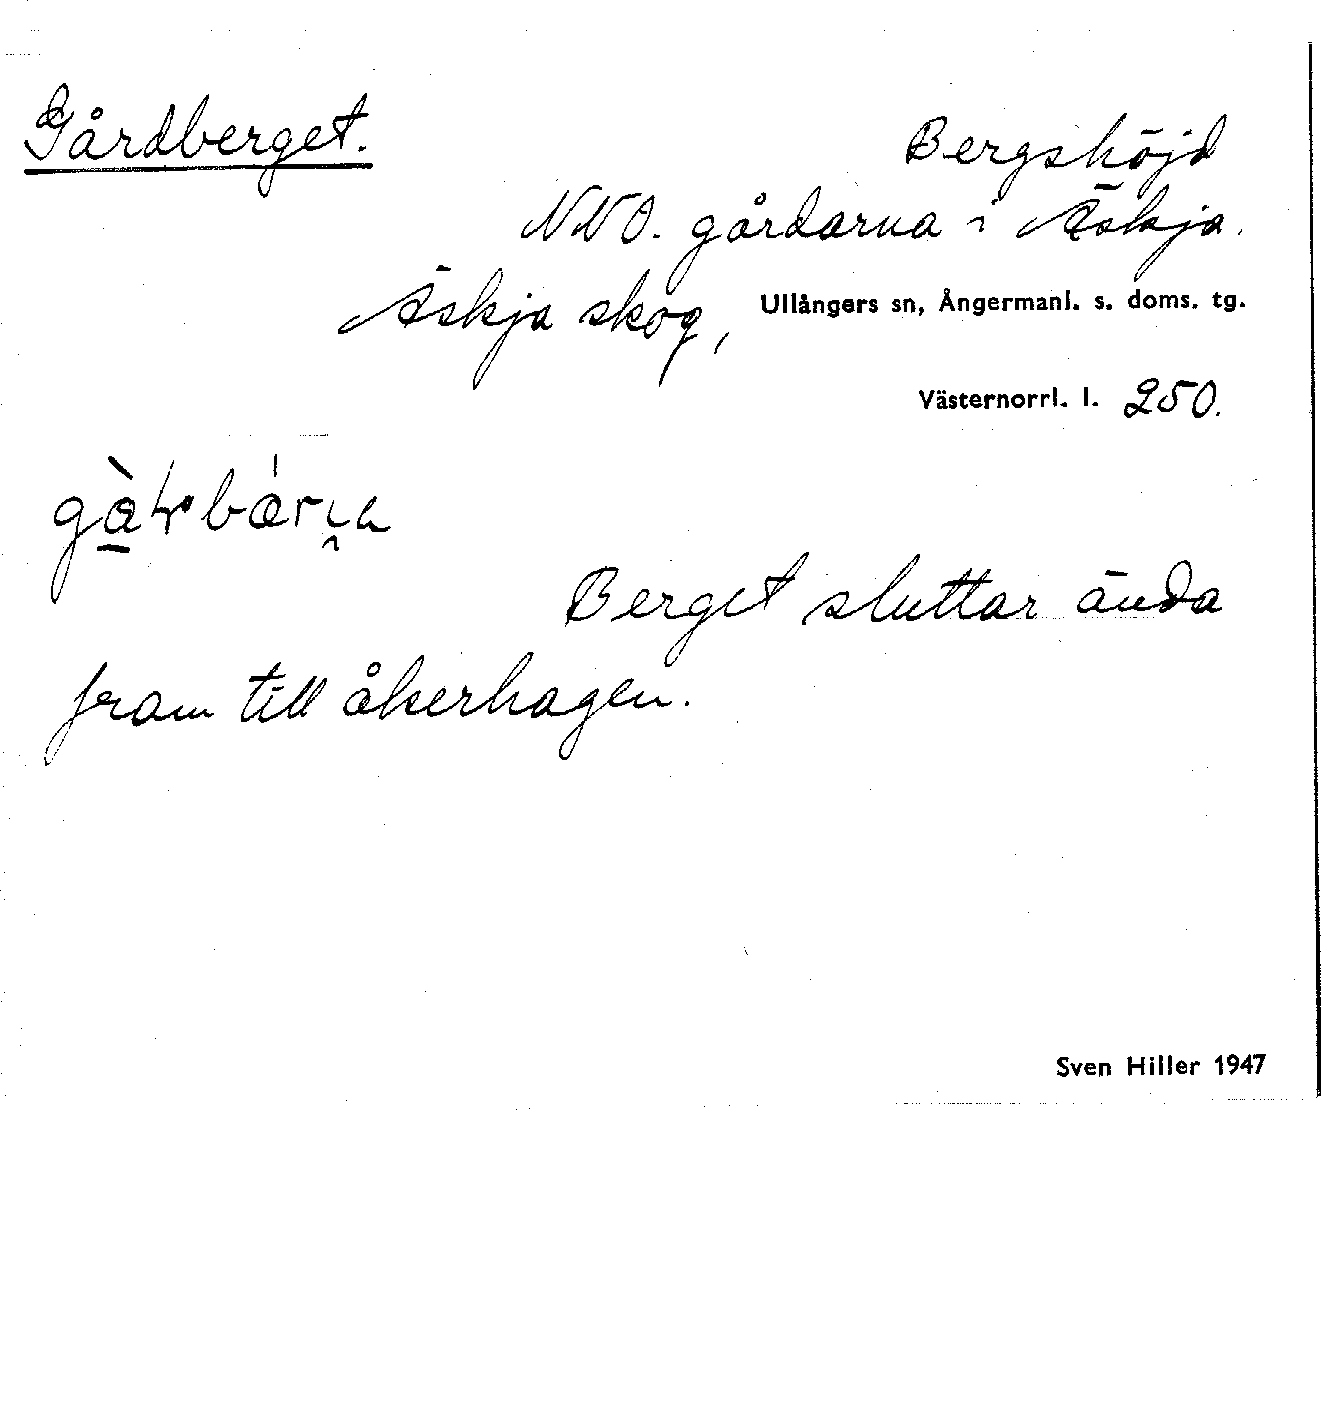 Gårdberget.
Bergshöjd
NNO. gårdarna i Äskja.
Äskja skog, Ullångers sn, Ångermanl. s. doms. tg.
Västernorrl. l. 250.
Berget sluttar ända
fram till åkerhagen.
Sven Hiller 1947